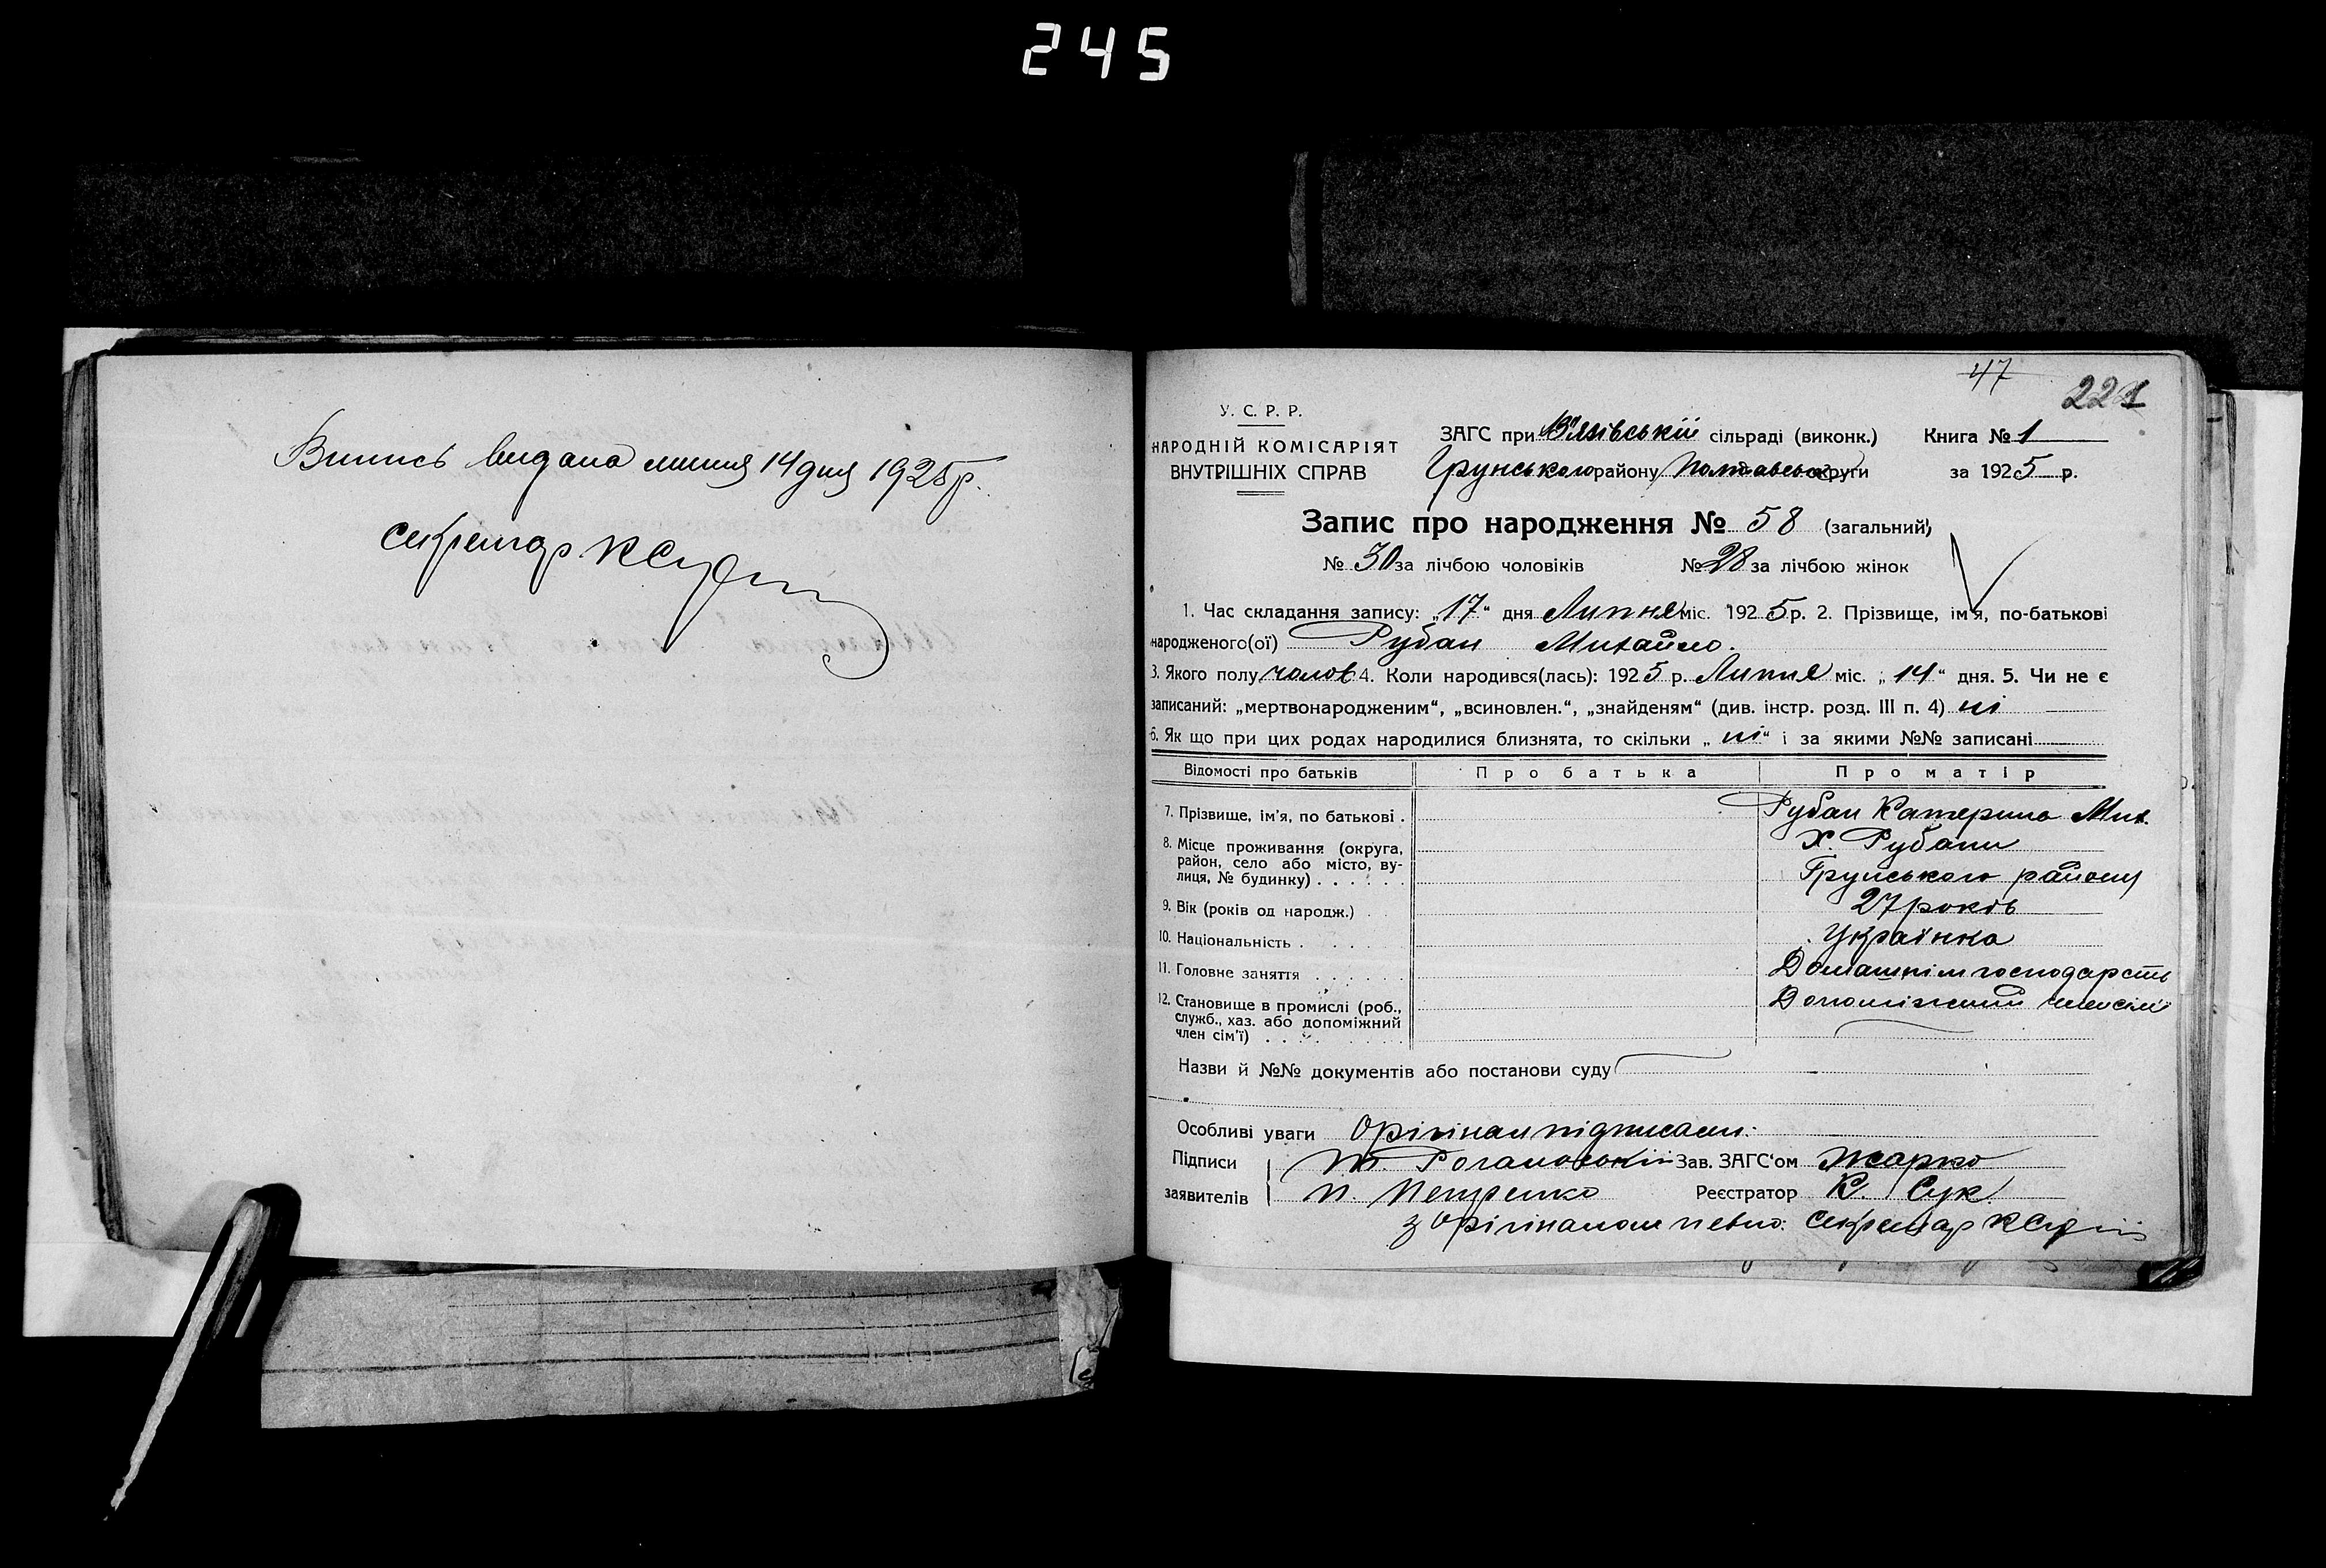 245
Випись видана липня 14 дня 1925 р.
Секретар К Сук
47
221
У. С. Р. Р.
НАРОДНІЙ КОМІСАРІЯТ
ВНУТРІШНІХ СПРАВ
ЗАГС при сільраді (виконк.) Книга № 1
Грунського району Полтавської округи за 1925 р.
Запис про народження № 58 (загальний)
№ 30 за лічбою чоловіків № 28 за лічбою жінок
1. Час складання запису: „17“ дня Липня міс. 1925 р. 2. Прізвище, ім'я, по-батькові
народженого(ої) Рубан Михайло.
3. Якого полу чолов 4. Коли народився(лась): 1925 р. Липня міс. „14“ дня. 5. Чи не є
записаний: „мертвонародженим“, „всиновлен.“, „знайденям“ (див. інстр. розд. III п. 4) ні
6. Як що при цих родах народилися близнята, то скільки „ні“ і за якими №№ записані
Відомості про батьків Про батька Про матір
7. Прізвище, ім'я, по батькові . Рубан Катерина Мих.
8. Місце проживання (округа, Х. Рубани
район, село або місто, ву-
лиця, № будинку) . . . . . . Грунського району
9. Вік (років од народж.) . . 27 років
10. Національність . . . . . Українка
11. Головне заняття . . . . . . Домашнім господарств
12. Становище в промислі (роб., Допоміжний член сім'ї
служб., хаз. або допоміжний
член сім'ї) . . . .
Назви й №№ документів або постанови суду
Особливі уваги Орігінал підписали:
Підписи Зав. ЗАГС'ом Жарко
заявителів П. Петренко Реєстратор К. Сук
З орігіналом певно: Секретар К Сук